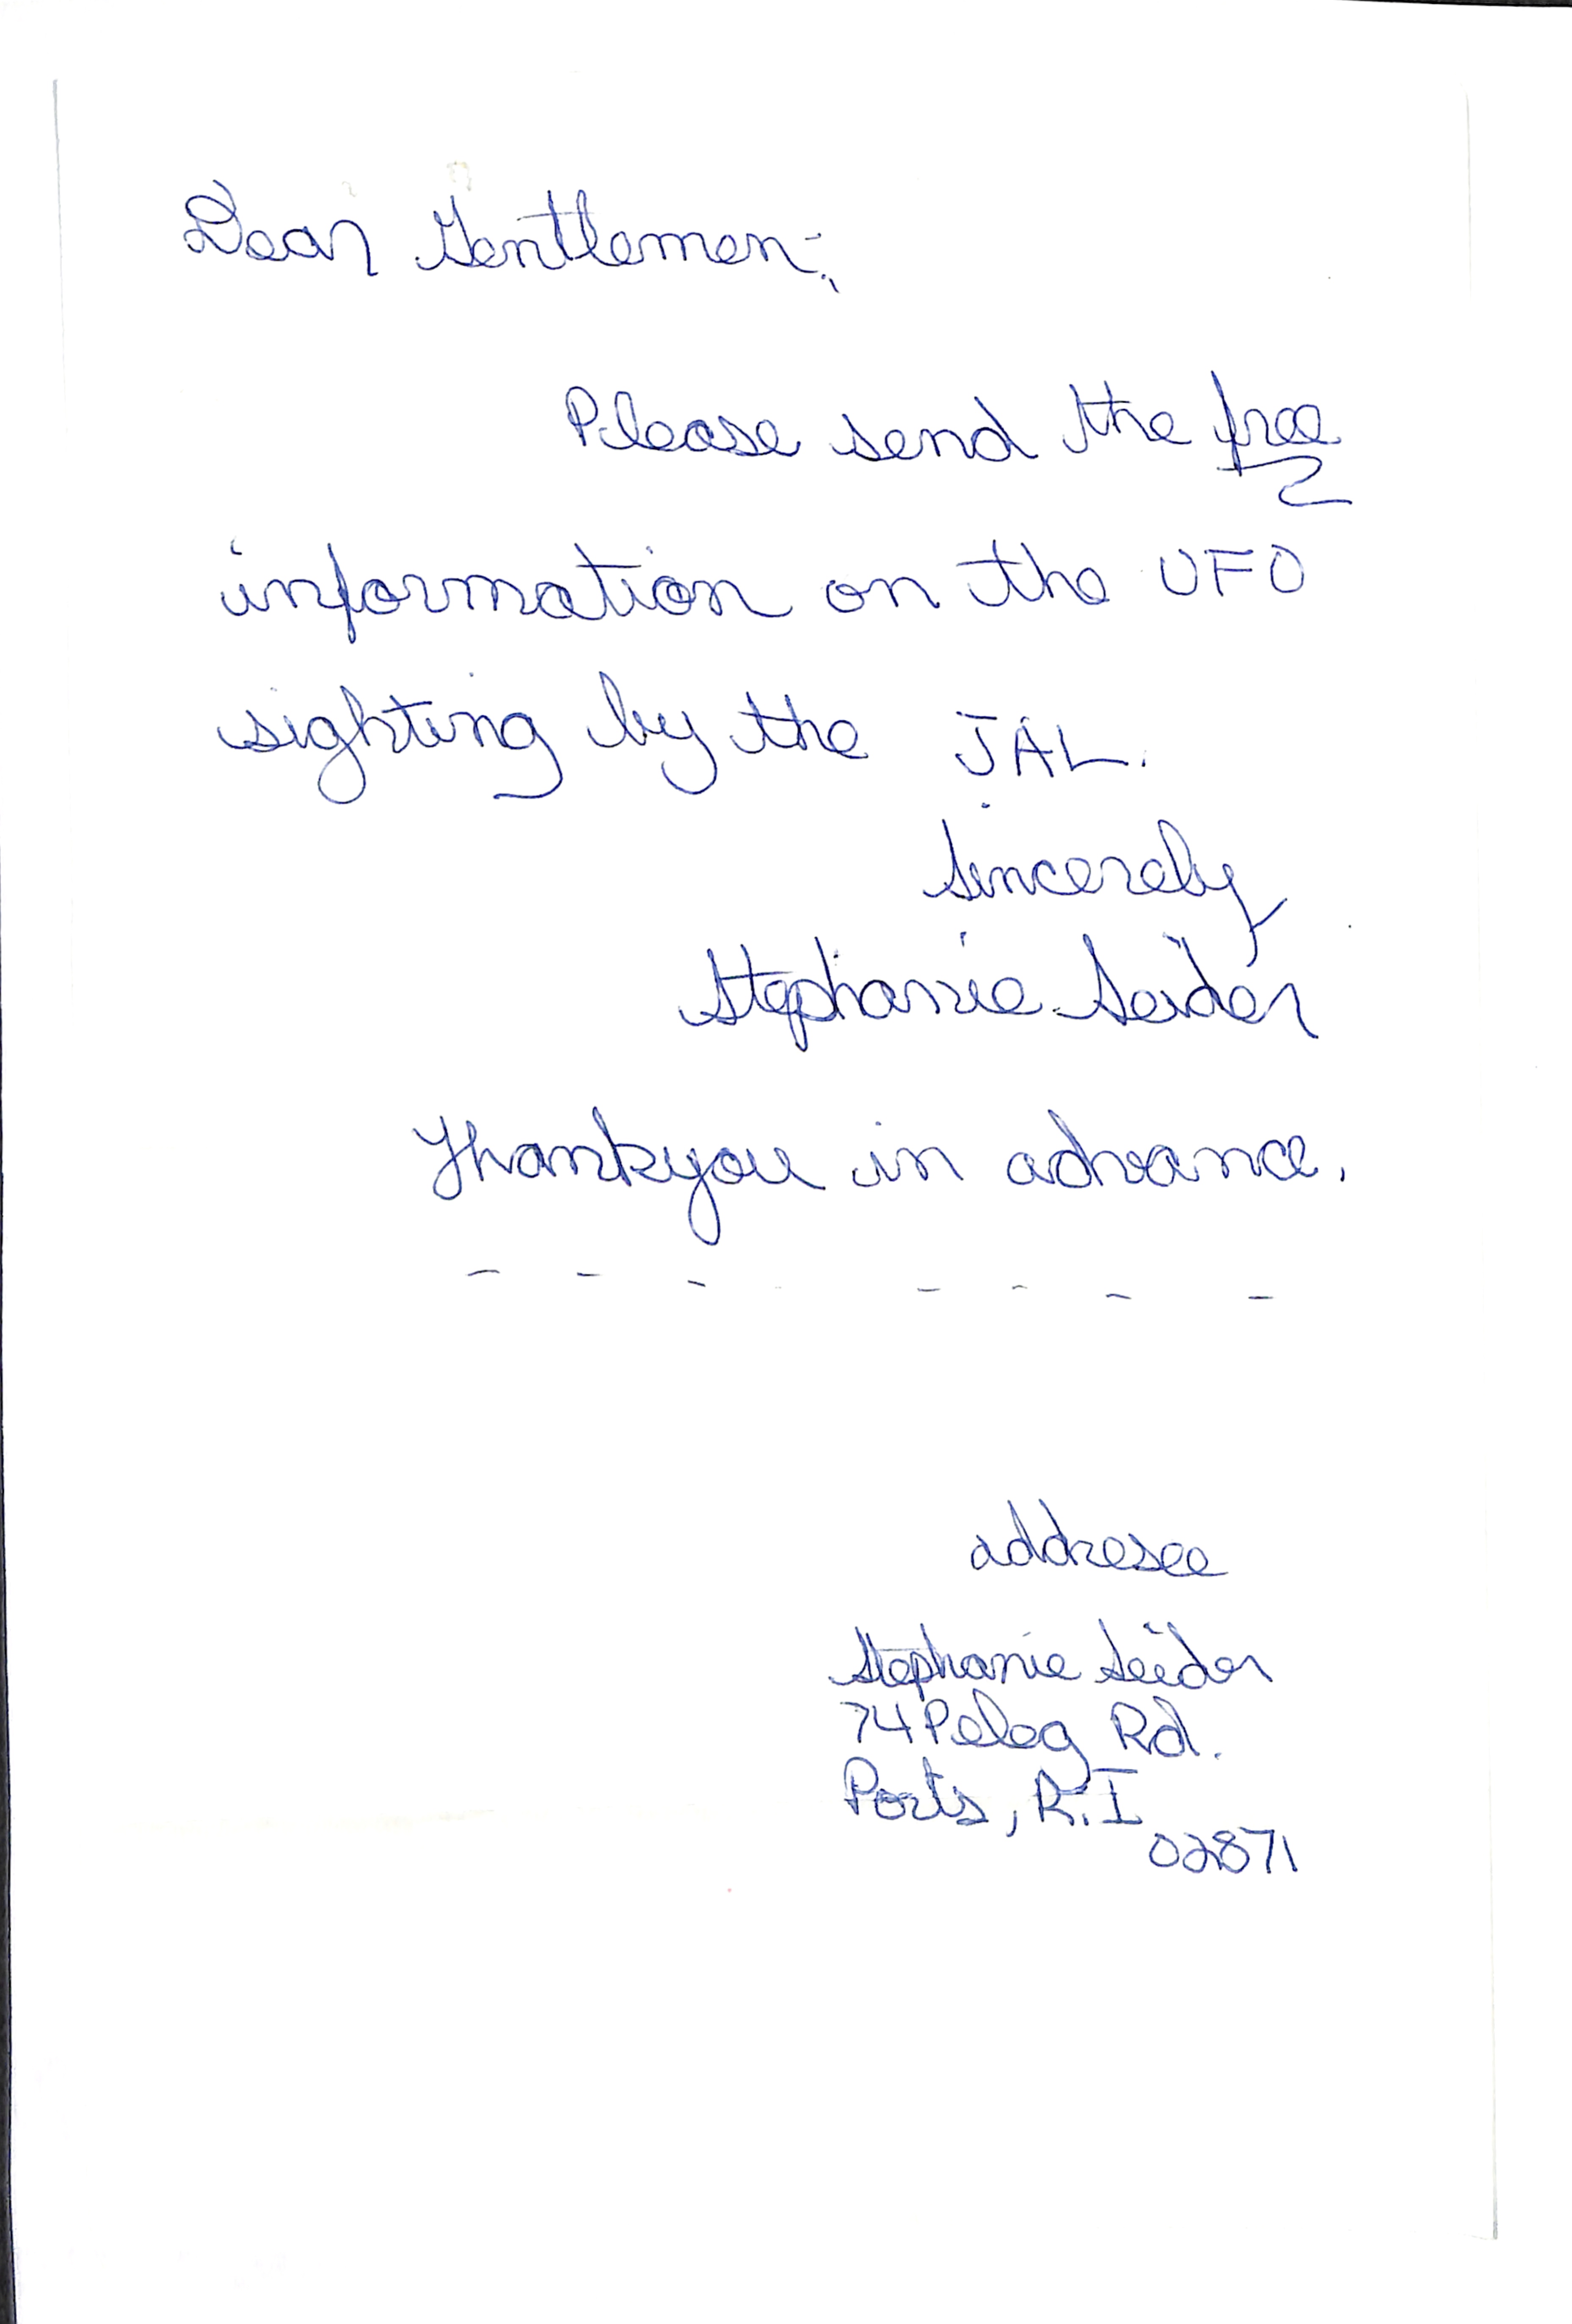 Dear Gentlemen:
Please send the free
information on the UFO
sighting by the JAL.
Sincerely
Stephanie Seider
Thankyou in advance.
- - - - - - -
addresee
Stephanie Seider
74 Peleg Rd.
Ports, R.I
02871